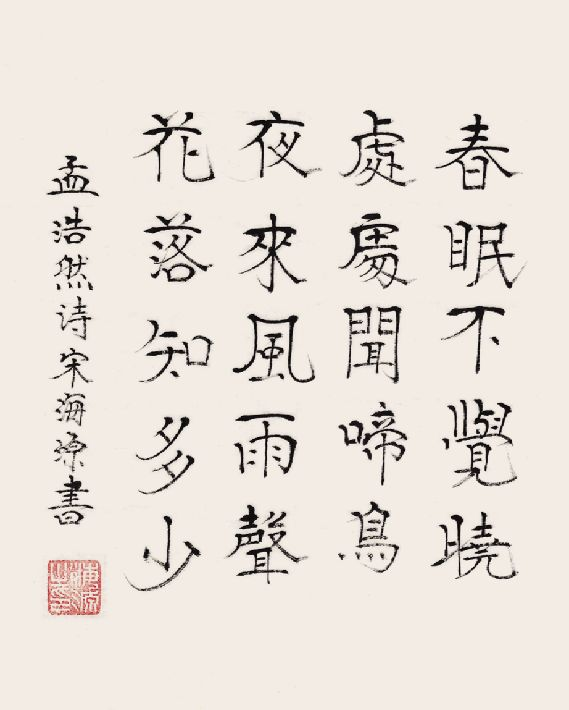 春眠不覺曉
處處聞啼鳥
夜來風雨聲
花落知多少
孟浩然诗宋海源書